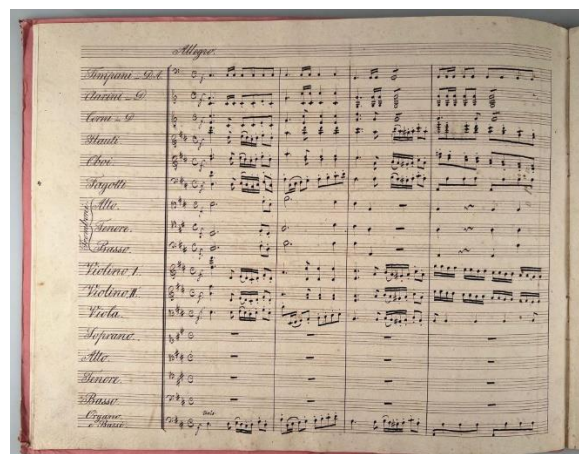 Allegro.
Timpani in D.A.
Clarini in D.
Corni in D.
Flauti.
Oboi.
Fagotti.
Tromboni
Alto.
Tenore.
Basso.
Violino I.
Violino II.
Viola.
Soprano.
Alto.
Tenore.
Basso.
Organo
e Basso.